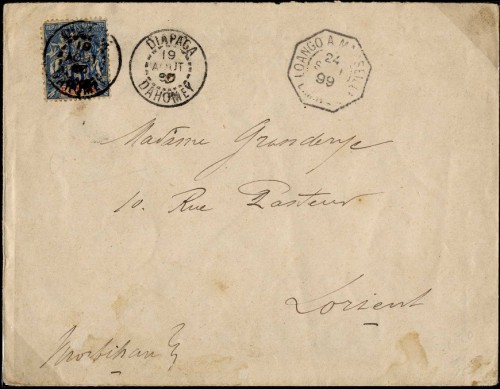 DIAPAGA
19
AOUT
DAHOMEY
LOANGO A
24
99
Madame
10. Rue Pasteur
Lorient
Morbihan